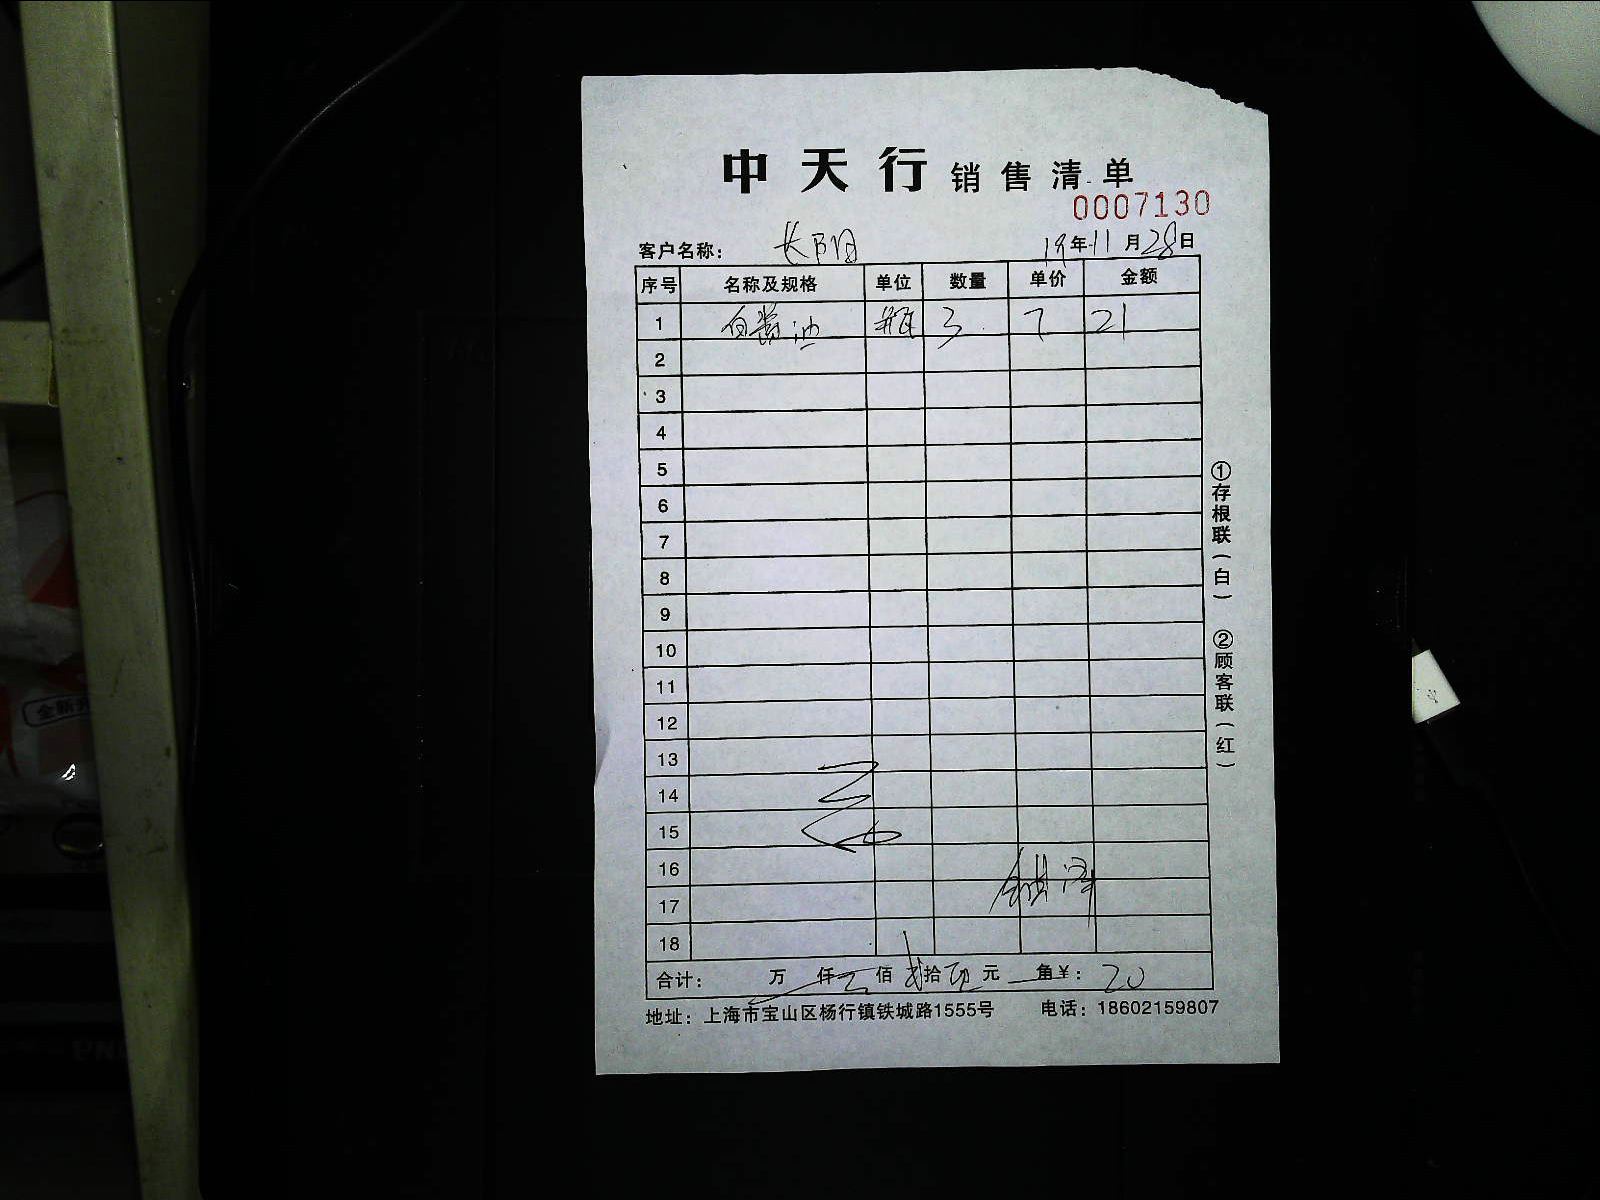 中天行 销售清单
0007130
客户名称: 长阳 19年11月28日
序号 名称及规格 单位 数量 单价 金额
1 白酱油 瓶 3 7 21
2
3
4
5
6
7
8
9
10
11
12
13
14
15
16
17
18
合计: 万 仟 佰 拾 元 角¥: 20
地址: 上海市宝山区杨行镇铁城路1555号 电话: 18602159807
①存根联(白) ②顾客联(红)
全新